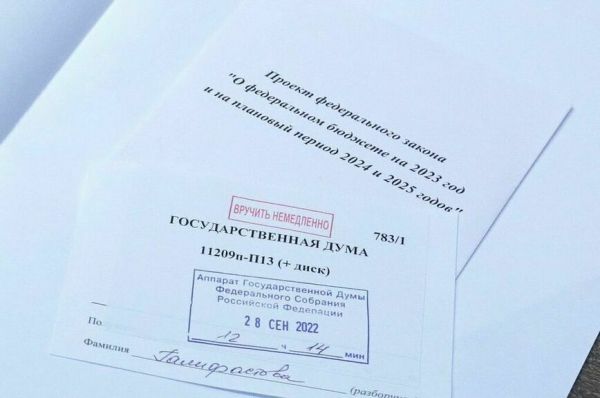 Проект федерального закона
"О федеральном бюджете на 2023 год
и на плановый период 2024 и 2025 годов"
ВРУЧИТЬ НЕМЕДЛЕННО
783/1
ГОСУДАРСТВЕННАЯ ДУМА
11209п-П13 (+ диск)
Аппарат Государственной Думы
Федерального Собрания
Российской Федерации
28 СЕН 2022
12 ч 14 мин
По
Фамилия Галифастова
(разборч